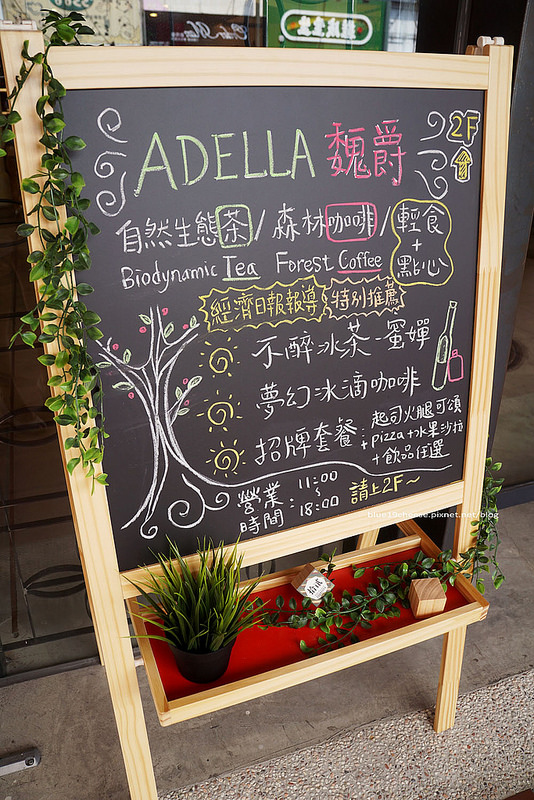 ADELLA 魏爵
2F
自然生態茶/森林咖啡/輕食+點心
Biodynamic Tea Forest Coffee
經濟日報報導 特別推薦
不醉冰茶-蜜嬋
夢幻冰滴咖啡
招牌套餐: 起司火腿可頌
+pizza+水果沙拉
+飲品任選
營業時間: 11:00
~
18:00
請上2F~
blue19chenco.pixnet.net/blog